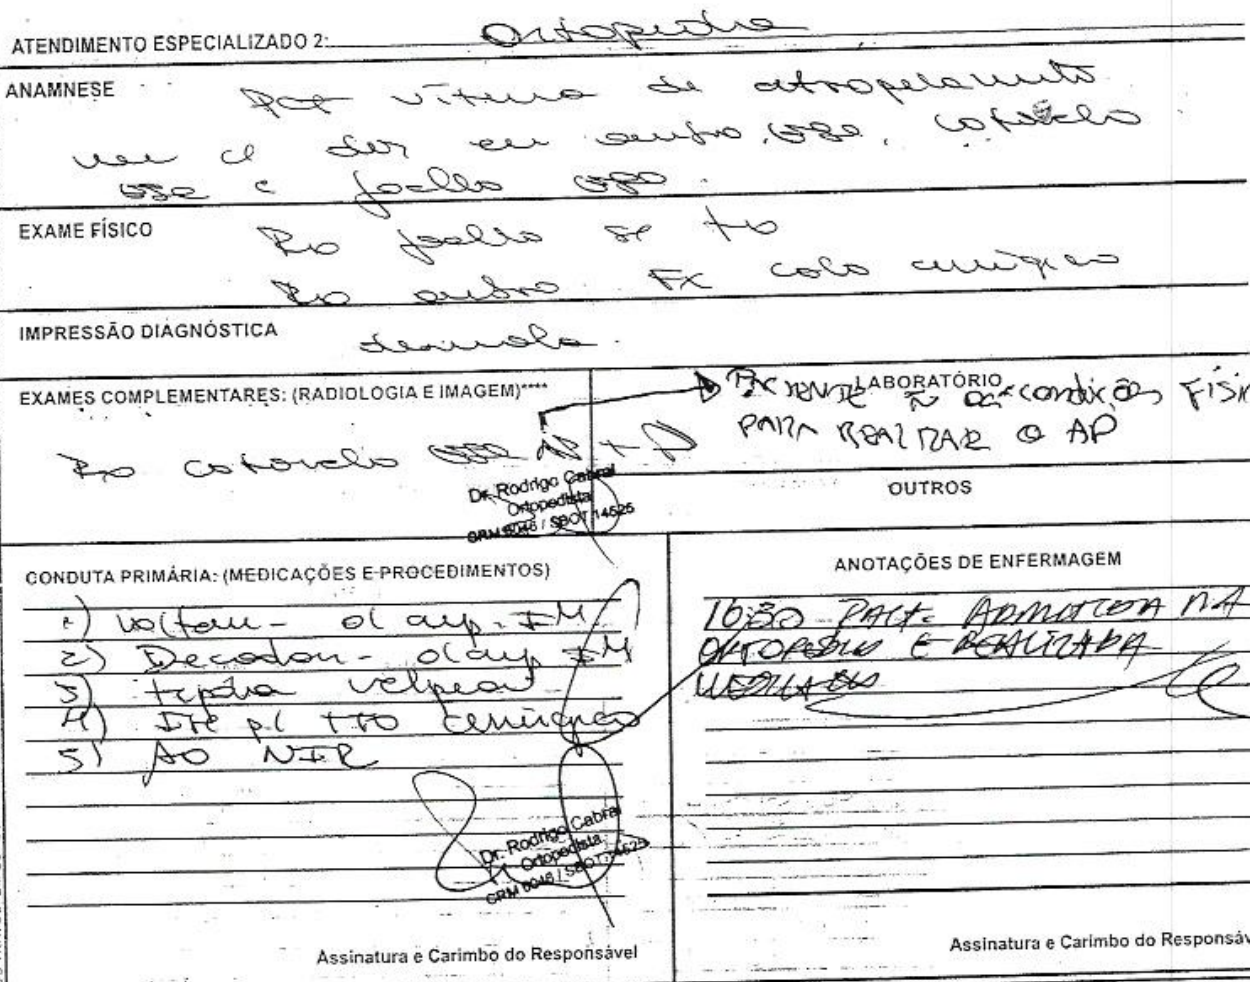 ATENDIMENTO ESPECIALIZADO 2: Ortopedia
ANAMNESE
Pct vítima de atropelamento
vem c/ dor em ombro, cotovelo
e joelho
EXAME FÍSICO
Rx joelho
Rx ombro Fx colo cirúrgico
IMPRESSÃO DIAGNÓSTICA
EXAMES COMPLEMENTARES: (RADIOLOGIA E IMAGEM)****
Rx cotovelo AP + P
Dr. Rodrigo Cabral
Ortopedista
CRM 6046 / SBOT 14525
LABORATÓRIO
PACIENTE condições FÍSI
PARA REALIZAR O AP
OUTROS
CONDUTA PRIMÁRIA: (MEDICAÇÕES E PROCEDIMENTOS)
1) Voltaren - 01 amp. IM
2) Decadron - 01 amp IM
3) tipóia velpeau
4) p/ TTO cirúrgico
5) AO NIR
Dr. Rodrigo Cabral
Ortopedista
CRM 6046 / SBOT 14525
Assinatura e Carimbo do Responsável
ANOTAÇÕES DE ENFERMAGEM
16:30 PACT. ADMITIDA NA
ORTOPEDIA E REALIZADA
Assinatura e Carimbo do Responsáv